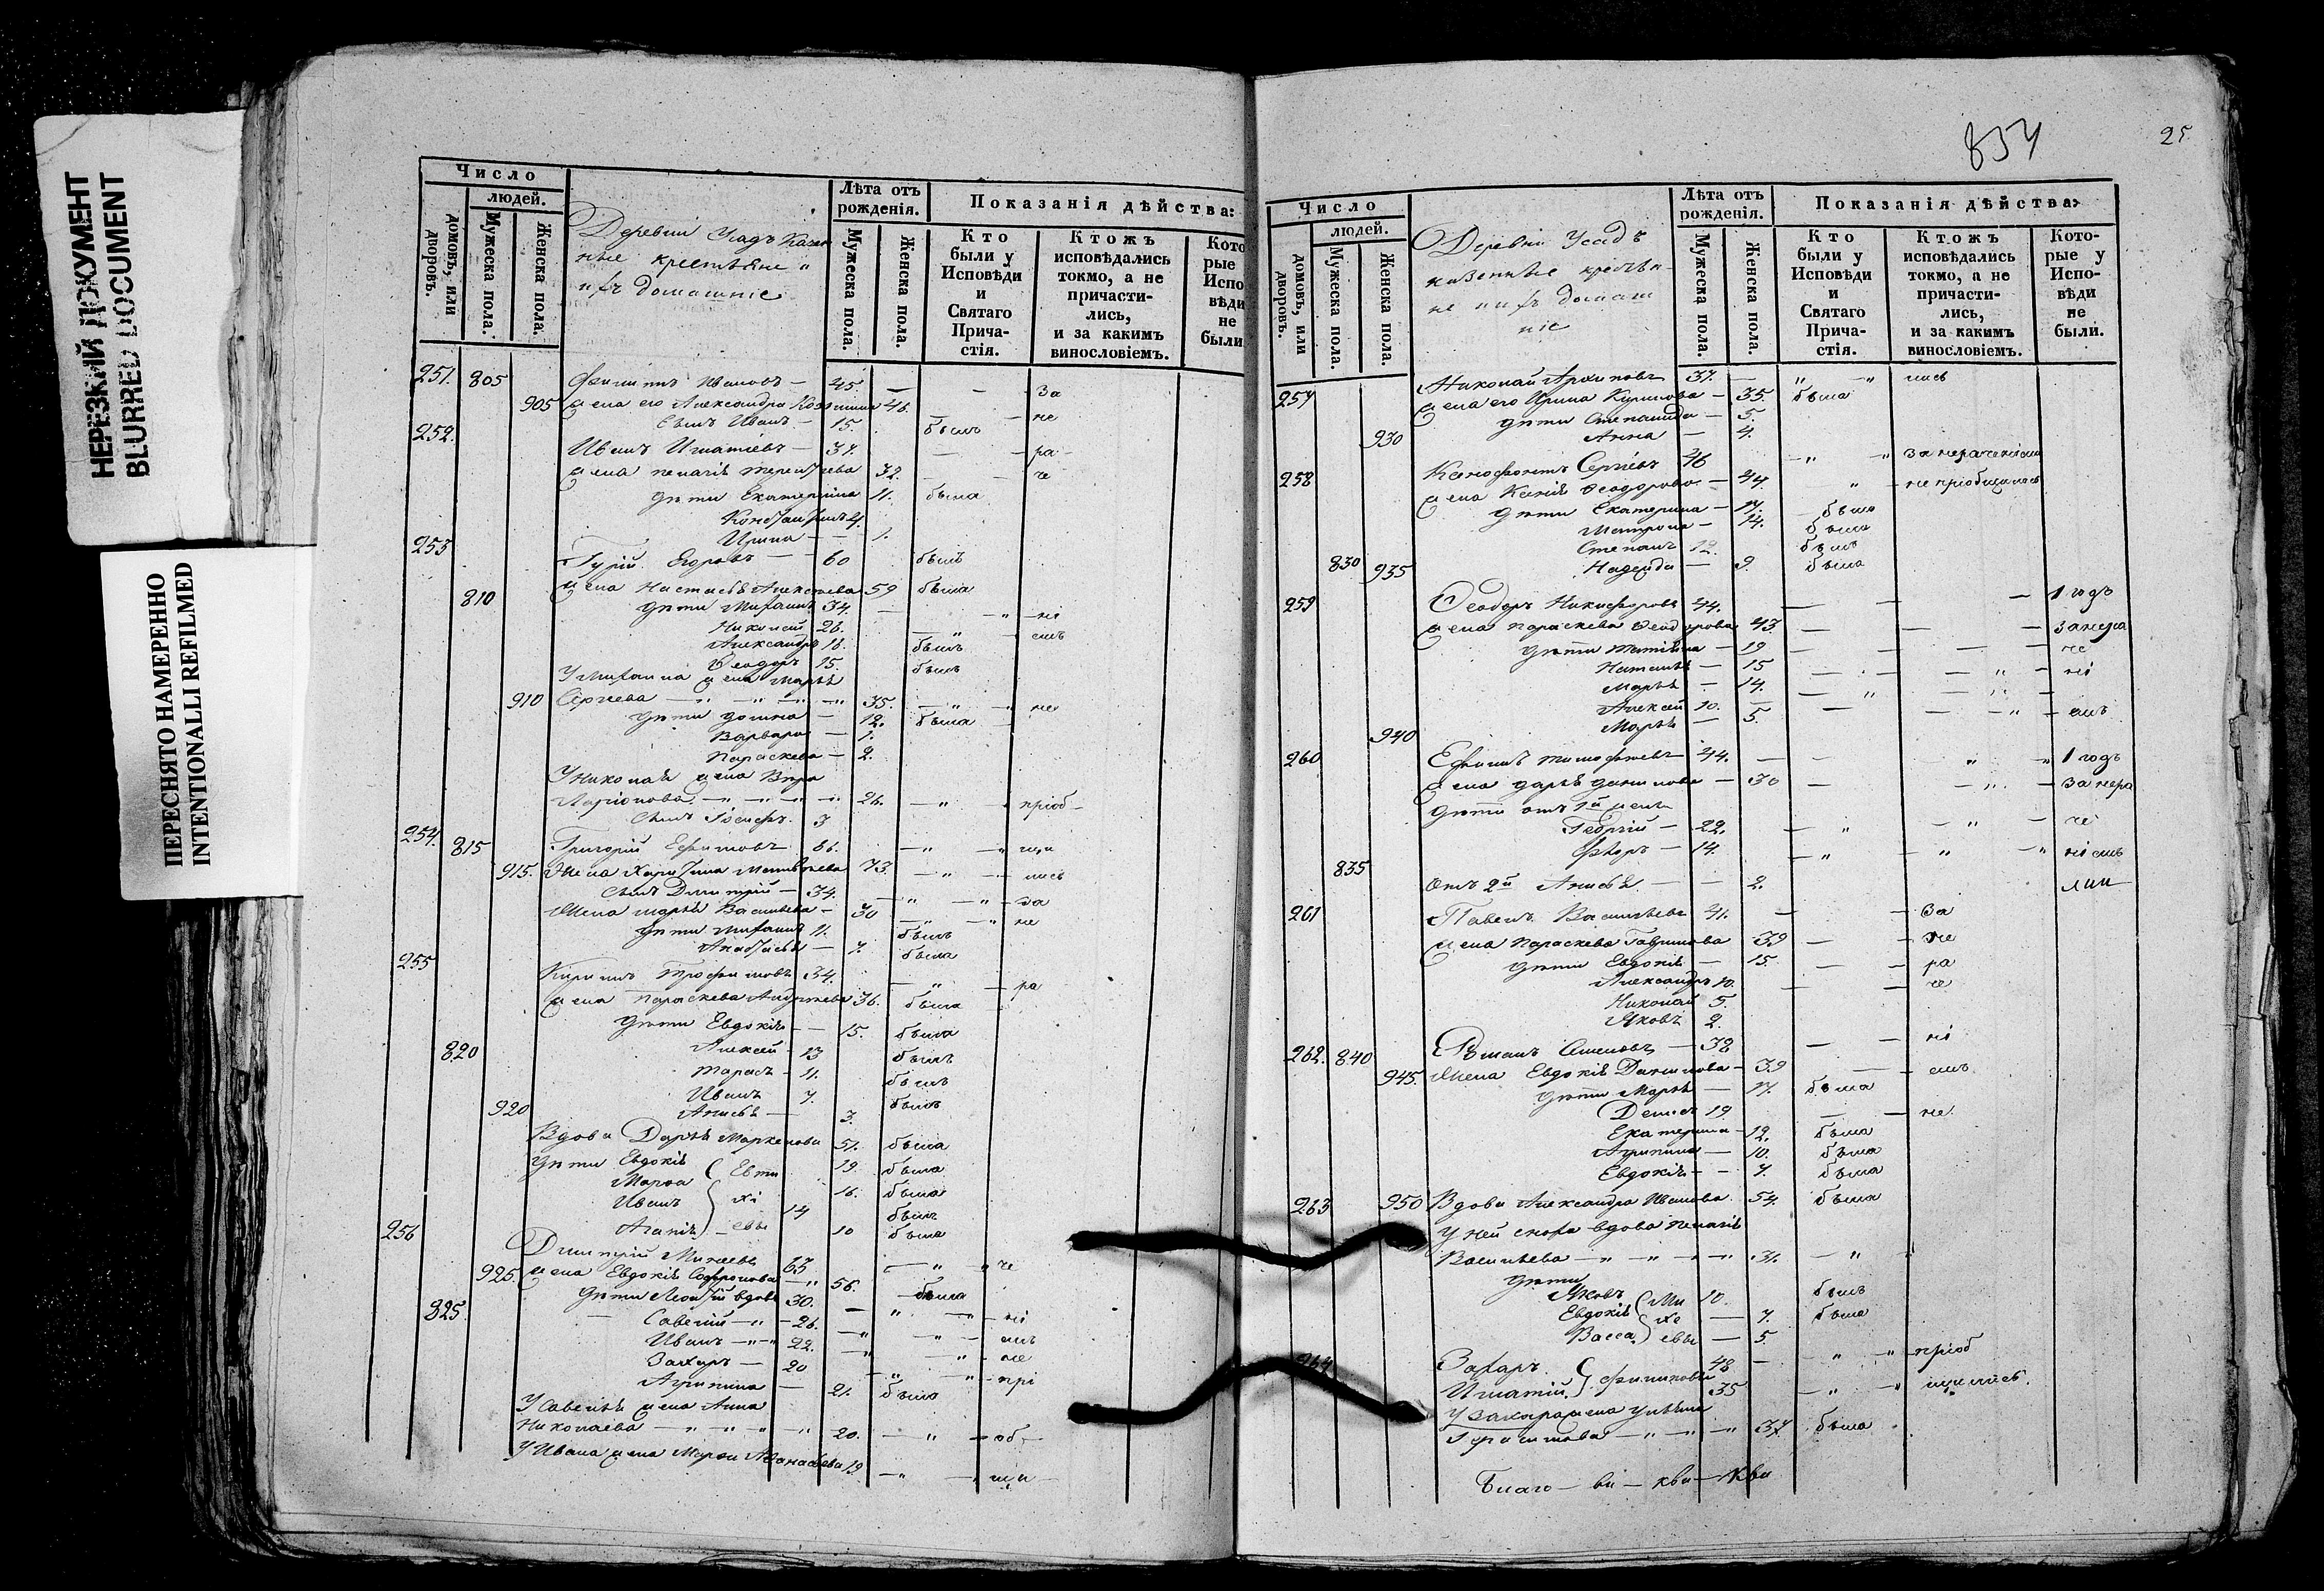 НЕРЕЗКИЙ ДОКУМЕНТ
BLURRED DOCUMENT
ПЕРЕСНЯТО НАМЕРЕННО
INTENTIONALLI REFILMED
Число
людей.
домовъ, или дворовъ.
Мужеска пола.
Женска пола.
Деревни Усадъ Казен
ные крестьяне и
ихъ домашніе
Лѣта отъ рожденія.
Мужеска пола.
Женска пола.
Показанія дѣйства:
Кто были у Исповѣди и Святаго Прича-стія.
Ктожъ исповѣдались токмо, а не причасти-лись, и за какимъ винословіемъ.
Кото рые Испо вѣди не были
251. 805 Филипъ Ивановъ — 45 — — За
905 жена его Александра 46. — — не
Сынъ Иванъ — 15. былъ
252. Иванъ Игнатіевъ — 37. — — ра
жена Пелагія Терентіева 32. — — че
дѣти Екатерина 11. была
Константинъ 4.
Ирина — — 1.
253 Гурій Егоровъ — — 60 былъ
жена Настасья Алексѣева 59 была
810 дѣти Михаилъ 34. — " ні
Николай 26. — " — емъ
Александръ 18. былъ
Ѳеодоръ 15. былъ
У Михаила жена Марья
910 Сергѣева — " — " — " 35. — " — " не
дѣти Домна — 12. была
Варвара — 1.
Параскева — 2.
У Николая жена Вѣра
Ларіонова — " — " — " 26. — " — пріоб
Сынъ Іосифъ. 3
254. 815 Григорій Ефимовъ 66. — " — " щи
915. Жена Харитина Матвѣева 73. — " — лись
Сынъ Дмитрій — 34. — " — " — за
Жена Марья Васильева — 30 — " — " не
дѣти Михаилъ 11. былъ
Анастасья — 7. была
255 Кирилъ Трофимовъ 34. — " — ра
жена Параскева Андреева 36. была
дѣти Евдокія — — 15. была
820 Алексей — 13 былъ
Тарасъ — 11. былъ
Иванъ 7. былъ
920 Анисья — 3.
Вдова Дарья Маркелова 51. была
дѣти Евдокія 19. была
Марѳа Евти 16. была
Иванъ хі 14 былъ
Агапія евы 10 была
256 Дмитрій Михеевъ 63 — " " че
925. жена Евдокія Софронова — " 56. была
дѣти Леонтій вдовъ 30. — " — " ні
825. Савелій — " — 26. — " — " емъ
Иванъ — " — " 22. — " — " не
Захаръ — 20 — " — " — прі
Агрипина — 21. была
У Савелья жена Анна
Николаева — " — " — " 20. — " — об
У Ивана жена Марѳа Аѳанасьева 19 — " — " щи
854
25.
Число
людей.
домовъ, или дворовъ.
Мужеска пола.
Женска пола.
Деревни Усадъ
казенные крестья-
не и ихъ домаш
ніе
Лѣта отъ рожденія.
Мужеска пола.
Женска пола.
Показанія дѣйства:
Кто были у Исповѣди и Святаго Прича-стія.
Ктожъ исповѣдались токмо, а не причасти-лись, и за какимъ винословіемъ.
Кото-рые у Испо-вѣди не были.
257 Николай Архиповъ 37. — " — " лись
жена его Ирина Кирилова — 35. была
дѣти Степанида — 5.
930 Анна — 4.
258 Ксенофонтъ Сергѣевъ 46 — " — " за нераченіемъ
жена Ксенія Ѳеодорова — 44. " не пріобщились
дѣти Екатерина — 17. была
Матрона — 14. была
830 Степанъ 12. былъ
935 Надежда — 9. была
259 Ѳеодоръ Никифоровъ 44. — — — 1 годъ
жена Параскева Ѳеодорова 43. — — — за нера
дѣти Татьяна — 19 — — — че
Наталья — 15 — — " — ні
Марья — 14. — " — " —
Алексей 10. — — " — емъ
940 Марья — 5.
260 Ефимъ Тимофеевъ 44. — — " " 1 годъ
жена Дарья Данилова — 30 — — " — за нера
дѣти отъ 1й жены
Георгій — 22. — " — " — че
835 Флоръ — 14. — " — " — " ніемъ
отъ 2й Анисья — — 2. или
261 Павелъ Васильевъ 41. — — За
жена Параскева Гаврилова 39 — — не
дѣти Евдокія — 15. — — ра
Александръ 10. — — че
Николай 5.
Яковъ 2.
262. 840 Романъ Семеновъ — 38 — — ні
945. Жена Евдокія Данилова — 39 — — емъ
дѣти Марья — 17. была
Денисъ 19. — — не.
Екатерина — 12. была
Агрипина — 10. была
Евдокія — — 7. была
263 950 Вдова Александра Иванова. 54. была
У ней сноха вдова Пелагія
Васильева — " — " — " 31. — " "
дѣти
Яковъ Ми 10. былъ
Евдокія хе — 7. была
Васса евы — 5.
264 Захаръ 48 — " " — пріоб
Игнатій Филиповы 35 — " — " щились.
У Захара жена Ульяна
Герасимова — " — " — " 37 была
Благо — ві — кви — кви